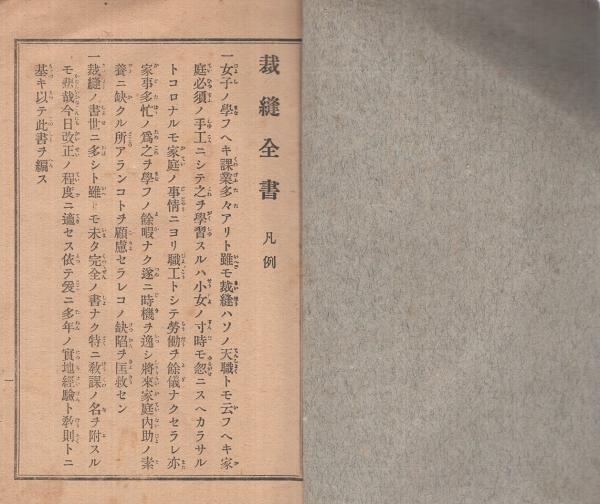 裁縫全書 凡例
一女子ノ學フヘキ課業多々アリト雖モ裁縫ハソノ天職トモ云フヘキ家
庭必須ノ手工ニシテ之ヲ學習スルハ小女ノ寸時モ忽ニスヘカラサル
トコロナルモ家庭ノ事情ニヨリ職工トシテ勞働ヲ餘儀ナクセラレ亦
家事多忙ノ爲之ヲ學フノ餘暇ナク遂ニ時機ヲ逸シ將來家庭內助ノ素
養ニ缺クル所アランコトヲ顧慮セラレコノ缺陷ヲ匡救セン
一裁縫ノ書世ニ多シト雖トモ未タ完全ノ書ナク特ニ敎課ノ名ヲ附スル
モ悲哉今日改正ノ程度ニ適セス依テ爰ニ多年ノ實地經驗ト敎則トニ
基キ以テ此書ヲ編ス
一